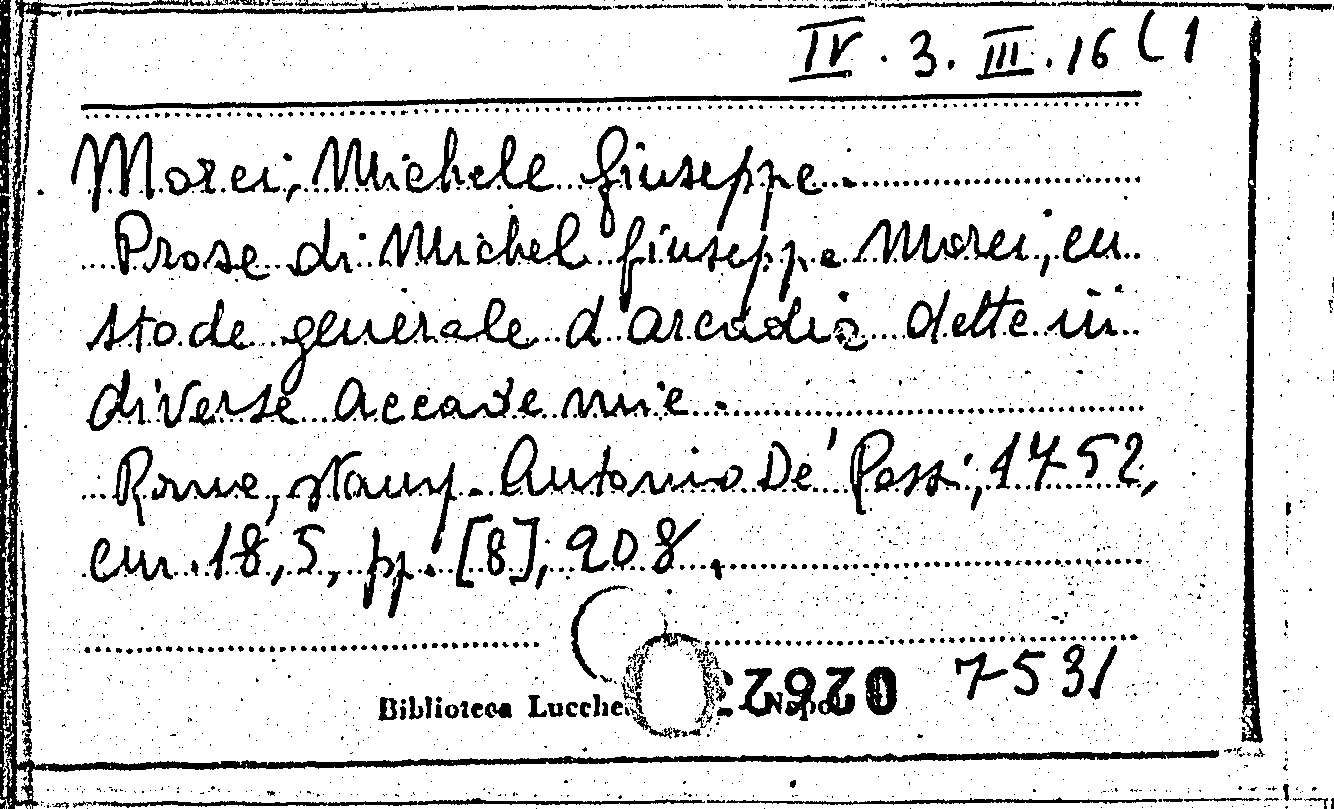 IV. 3. III. 16 (1
Morei, Michele Giuseppe.
Prose di Michel Giuseppe Morei, cu
stode generale d'arcadia dette in
diverse accademie.
Roma, stamp. Antonio De' Rossi, 1752,
cm. 18,5, pp. [8], 208.
Biblioteca Napoli
7531